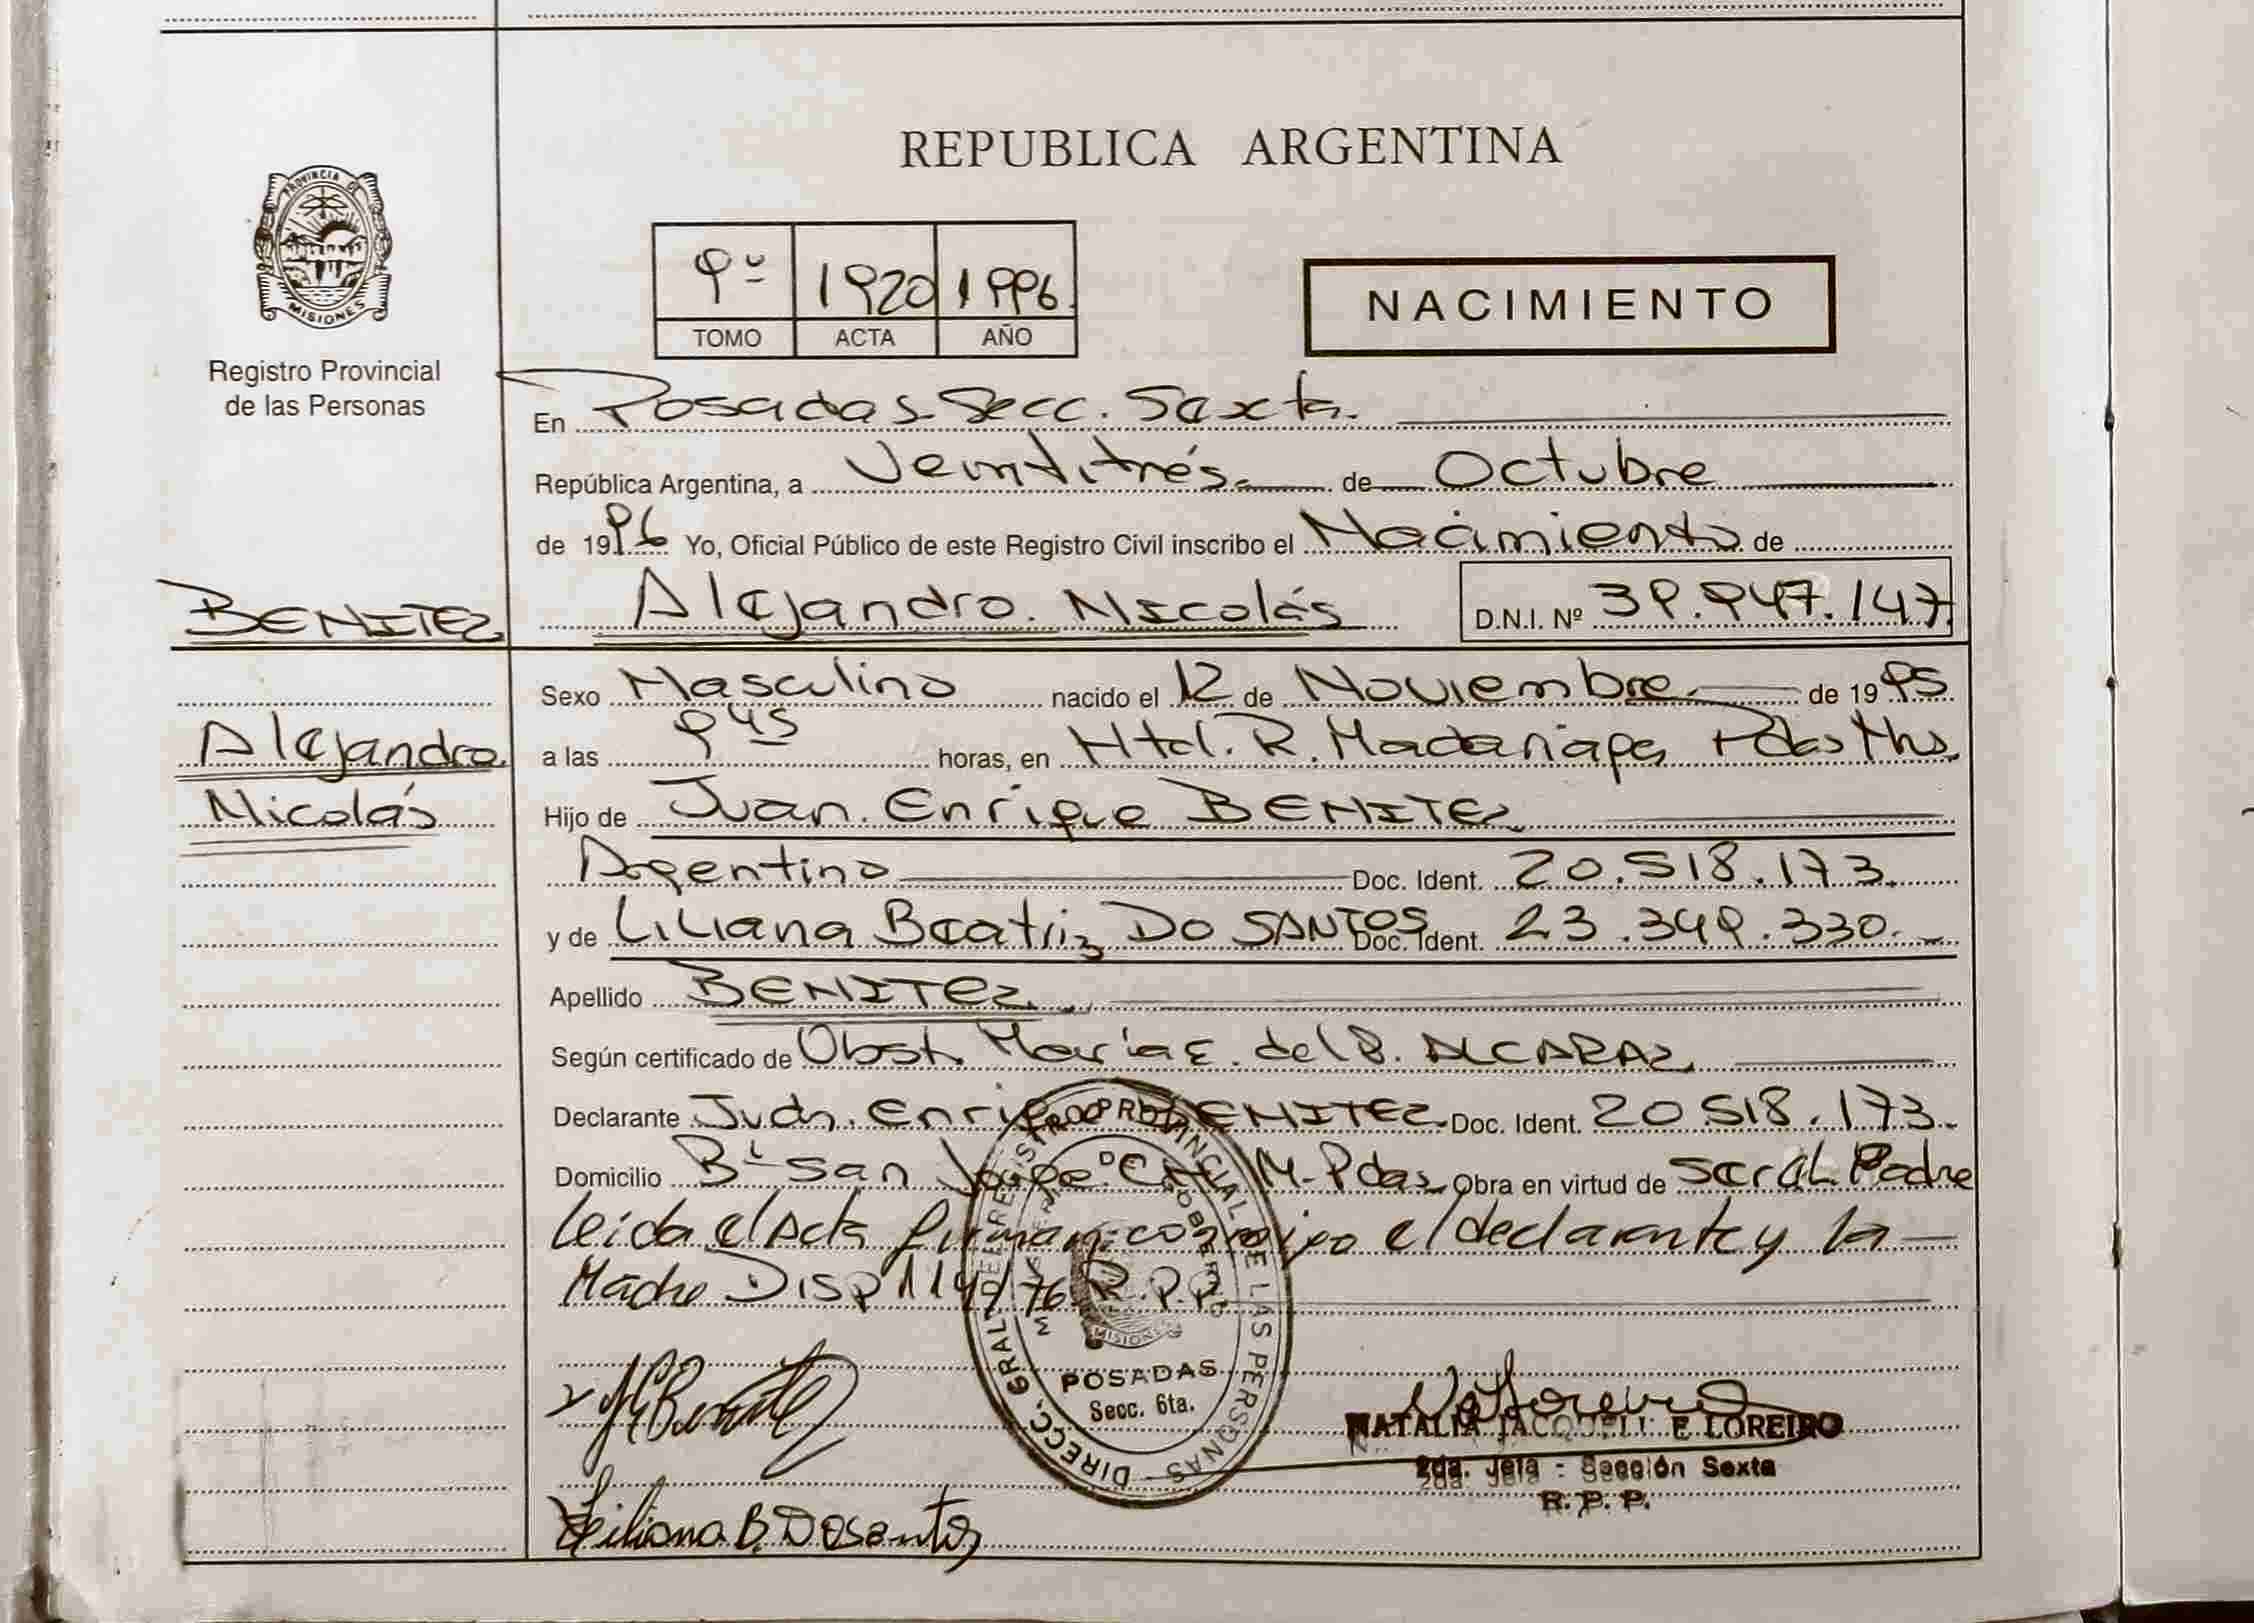 REPUBLICA ARGENTINA
PROVINCIA DE
MISIONES
Registro Provincial
de las Personas
9º 1920 1996.
TOMO ACTA AÑO
NACIMIENTO
En Posadas Secc. Sexta.
República Argentina, a Veintitrés de Octubre
de 1996 Yo, Oficial Público de este Registro Civil inscribo el Nacimiento de
BENITEZ
Alejandro. Nicolás D.N.I. Nº 39.947.147.
Alejandro.
Nicolás
Sexo Masculino nacido el 12 de Noviembre. de 1995.
a las 9 45 horas, en Htal. R. Madariaga, Pdas Mns.
Hijo de Juan. Enrique BENITEZ
Argentino Doc. Ident. 20.518.173.
y de Liliana Beatriz DO SANTOS Doc. Ident. 23.349.330.
Apellido BENITEZ
Según certificado de Obst. María E. del B. ALCARAZ
Declarante Juan. Enrique BENITEZ Doc. Ident. 20.518.173.
Domicilio Bº San Jorge M-Pdas Obra en virtud de ser el Padre
Leida el Acta firman conmigo el declarante y la
Madre Disp 1149/76 R.P.P.
DIRECC. GRAL DE REGISTRO PROVINCIAL DE LAS PERSONAS
GOBIERNO
MISIONES
POSADAS
Secc. 6ta.
NATALIA JACQUELINE LOREIRO
2da. Jefa - Sección Sexta
R. P. P.
Liliana B. Dosantos